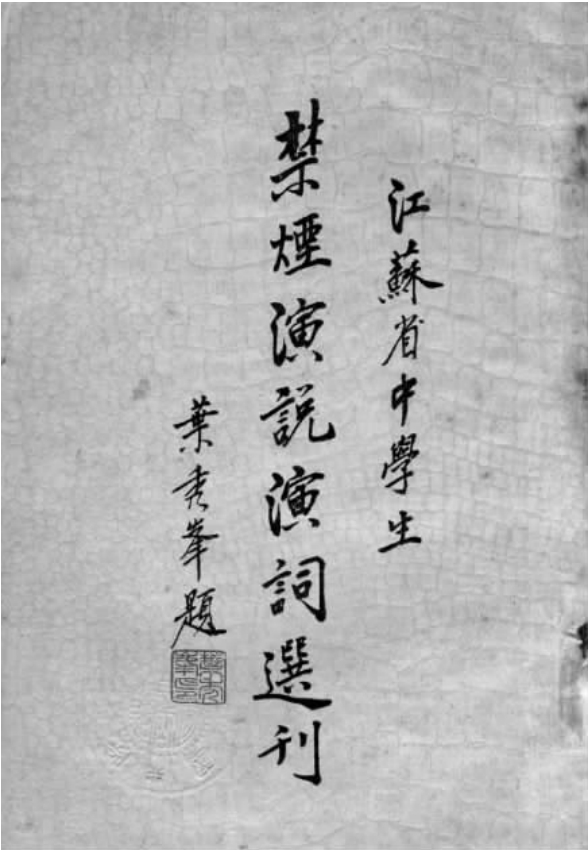 江蘇省中學生
禁煙演說演詞選刊
葉秀峯題